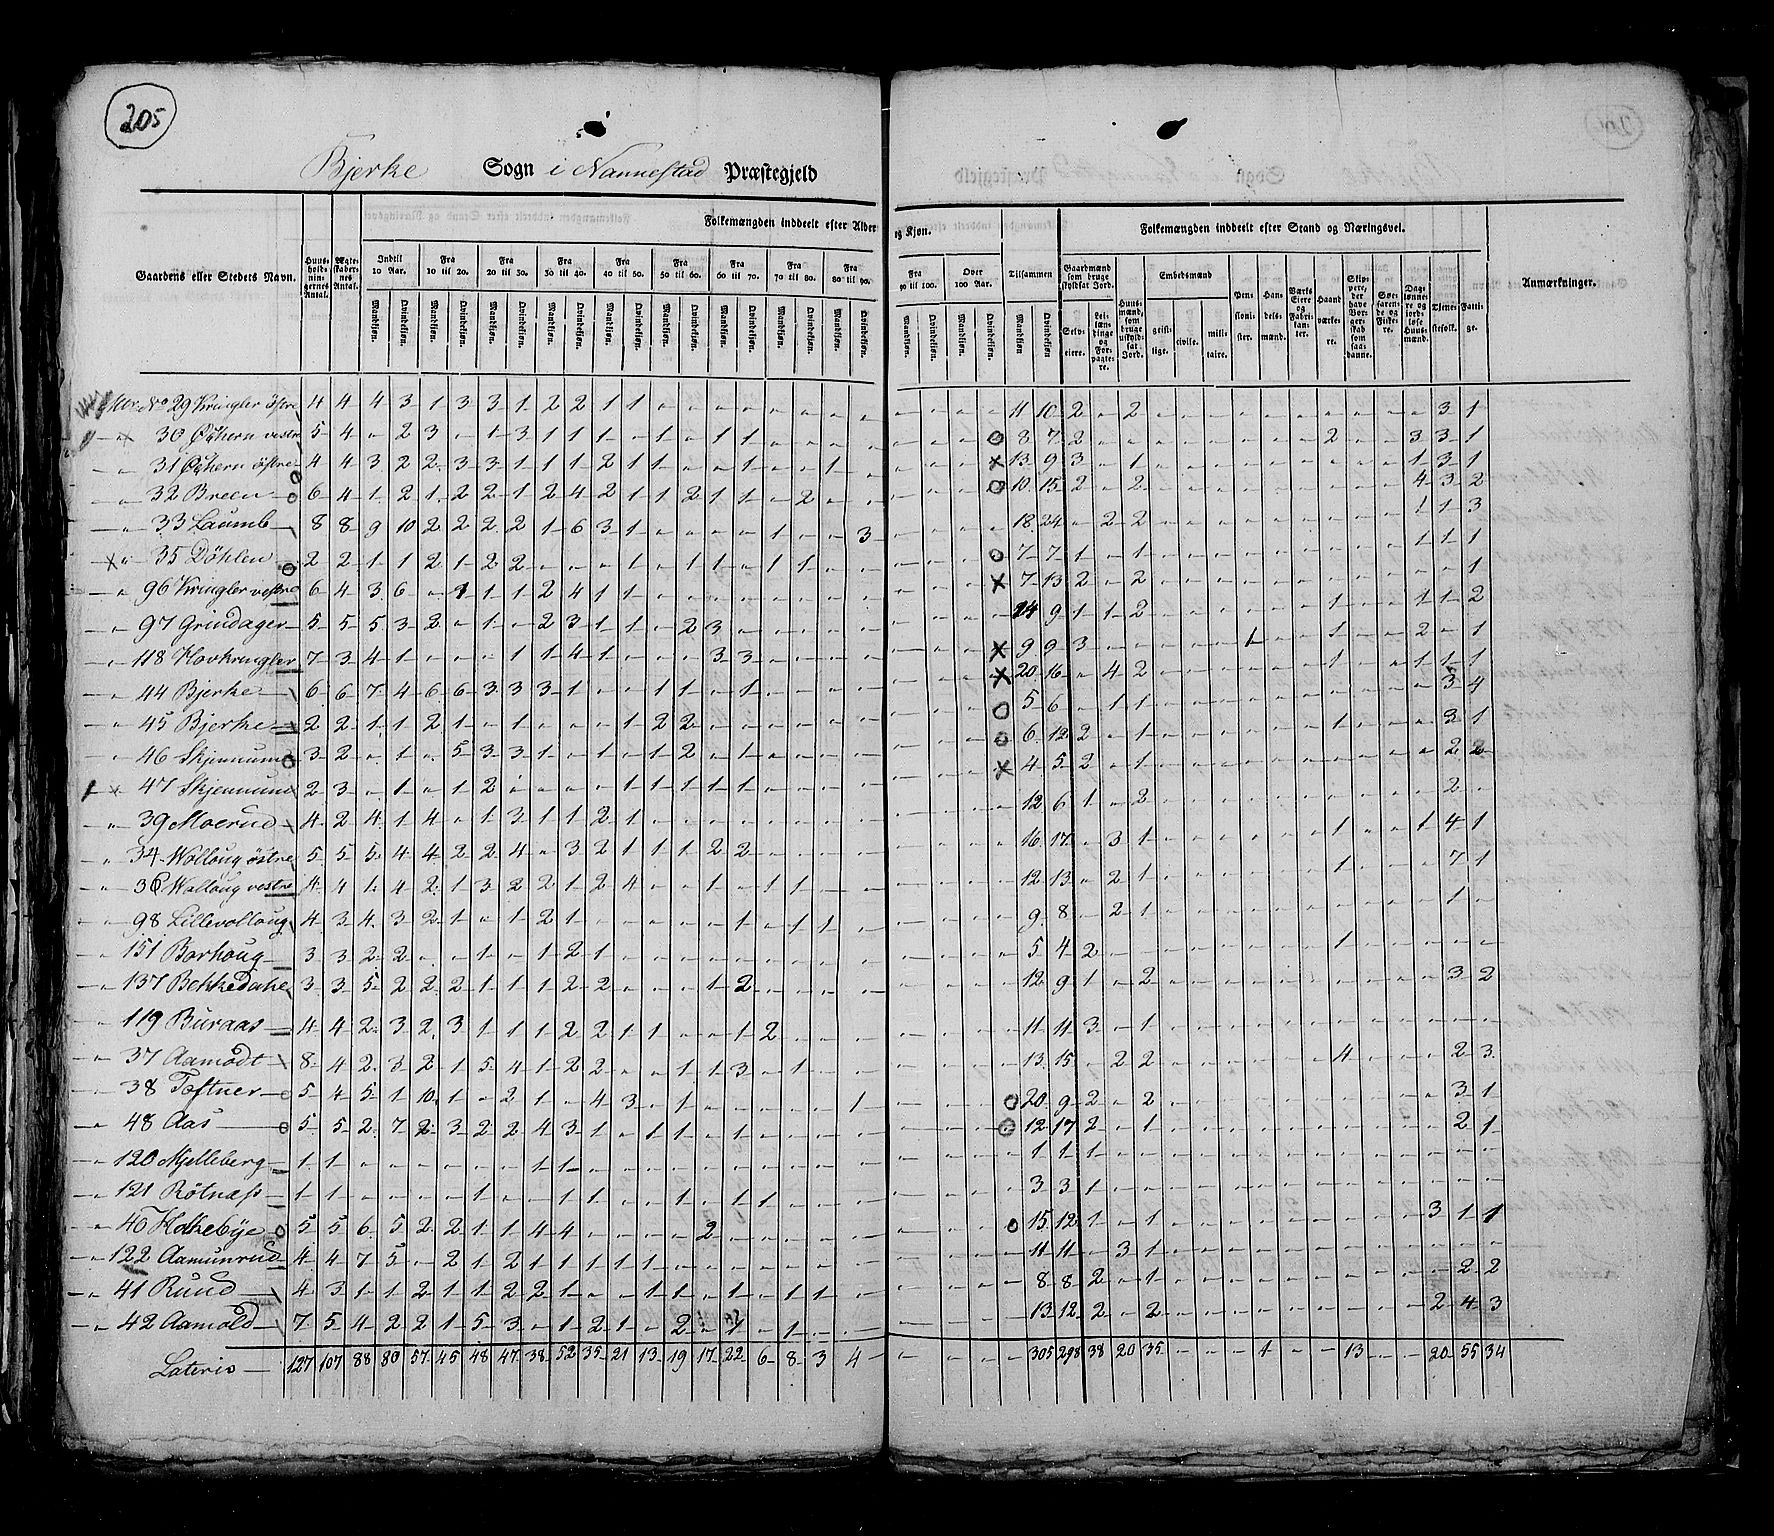 205
Bjerke Sogn i Nannestad Præstegjeld
Folkemængden inddeelt efter Alder og Kjøn.
Folkemængden inddeelt efter Stand og Næringsvei.
Gaardens eller Stedets Navn.
Huus-holdnin-gernes Antal.
Ægte-skaber-nes Antal.
Indtil 10 Aar.
Fra 10 til 20.
Fra 20 til 30.
Fra 30 til 40.
Fra 40 til 50.
Fra 50 til 60.
Fra 60 til 70.
Fra 70 til 80.
Fra 80 til 90.
Fra 90 til 100.
Over 100 Aar.
Tilsammen
Mandkjøn. Qvindekjøn.
Gaardmænd som bruge skyldsat Jord.
Selv-eiere.
Lei-læn-dinge og For-pagte-re.
Huus-mænd, som bruge uskyld-sat Jord.
Embedsmænd
geist-lige.
civile.
mili-taire.
Pen-sioni-ster.
Han-dels-mænd.
Værks Eiere og Fabri-kan-ter.
Haand-værke-re.
Skip-pere, der have Bor-ger-skab som saa-danne.
Søe-faren-de og Fiske-re.
Dag-lønne-re og jord-løse Huus-mænd.
Tjene-stefolk.
Fatti-ge.
Anmærkninger.
Mtr. No 29 Kringler østre 4 4 4 3 1 3 3 1 2 2 1 1 11 10 2 2 3 1
30 vestre 5 4 2 3 1 3 1 1 1 1 1 1 8 7 2 2 3 3 1
31 østre 4 4 3 2 2 3 3 1 1 1 2 1 1 1 1 13 9 3 1 1 3 1
32 Breen 6 4 1 2 1 2 2 1 2 4 2 1 1 2 1 1 2 10 15 2 2 4 3 2
33 Laumb 8 8 9 10 2 2 2 2 1 6 3 1 1 3 18 24 2 2 1 1 3
35 Døhlen 2 2 1 1 2 1 2 2 1 1 1 1 1 7 7 1 1 1 1 1
96 Kringler vestre 6 4 3 6 1 1 1 2 4 1 1 7 13 2 2 1
97 Grindager 5 5 5 3 2 1 2 3 1 1 2 3 14 9 1 1 2 1 1 1 2
118 Hovkringler 7 3 4 1 1 1 4 1 3 3 9 9 3 1 1 2 1
44 Bjerke 6 6 7 4 6 6 3 3 3 1 1 1 1 20 16 4 2 1 1 1 1
45 Bjerke 2 2 1 1 2 1 1 1 2 2 5 6 1 1 3 4
46 Skjennum 3 2 1 5 3 3 1 1 1 2 1 6 12 2 1 1 3 1
47 Skjennum 2 3 1 1 2 1 1 1 1 1 4 5 2 1 2 2
39 Moerud 4 2 4 1 4 1 3 1 1 2 1 12 6 1 2 2
34 Wolloug østre 5 5 5 4 4 2 2 4 3 2 1 1 1 2 2 16 17 3 1 1 1 4 1
36 Wolloug vestre 4 4 1 4 2 1 3 2 2 1 2 4 1 1 1 12 13 2 1 1 7 1
98 Lillevolloug 4 3 4 3 2 1 1 2 1 1 1 1 9 8 2 1 1
151 Borhoug 3 3 2 2 1 1 2 1 5 4 2 1
137 Bekkedahl 3 3 5 2 2 2 1 1 1 2 2 1 2 12 9 1 2 3 2
119 Buraas 4 4 2 3 2 3 1 1 1 2 2 1 1 1 2 11 11 3 1
37 Aamodt 8 4 2 3 2 1 5 4 1 2 2 1 1 3 1 13 15 2 2 4 2 3
38 Toftner 5 4 5 1 10 1 2 1 4 3 1 1 20 9 2 2 3 1
48 Aas 5 5 2 7 2 3 2 2 4 3 1 1 1 1 12 17 2 1 2 1
120 Mjelleberg 1 1 1 1 1 1 1
121 Rötnæss 1 1 1 1 1 1 1 1 3 3 1
40 Hakebye 5 5 6 5 2 2 1 1 4 4 2 15 12 1 1 3 1 1
122 Aamunrud 4 4 7 5 2 1 2 1 1 1 1 1 11 11 3 1
41 Ruud 4 3 1 1 2 1 1 2 2 1 1 1 1 1 1 8 8 2 1 2 2
42 Aamold 7 5 4 2 2 1 5 3 1 2 1 2 1 1 13 12 2 2 2 4 3
Lateris 127 107 88 80 57 45 48 47 38 52 35 21 13 19 17 22 6 8 3 4 305 298 38 20 35 1 13 20 55 34